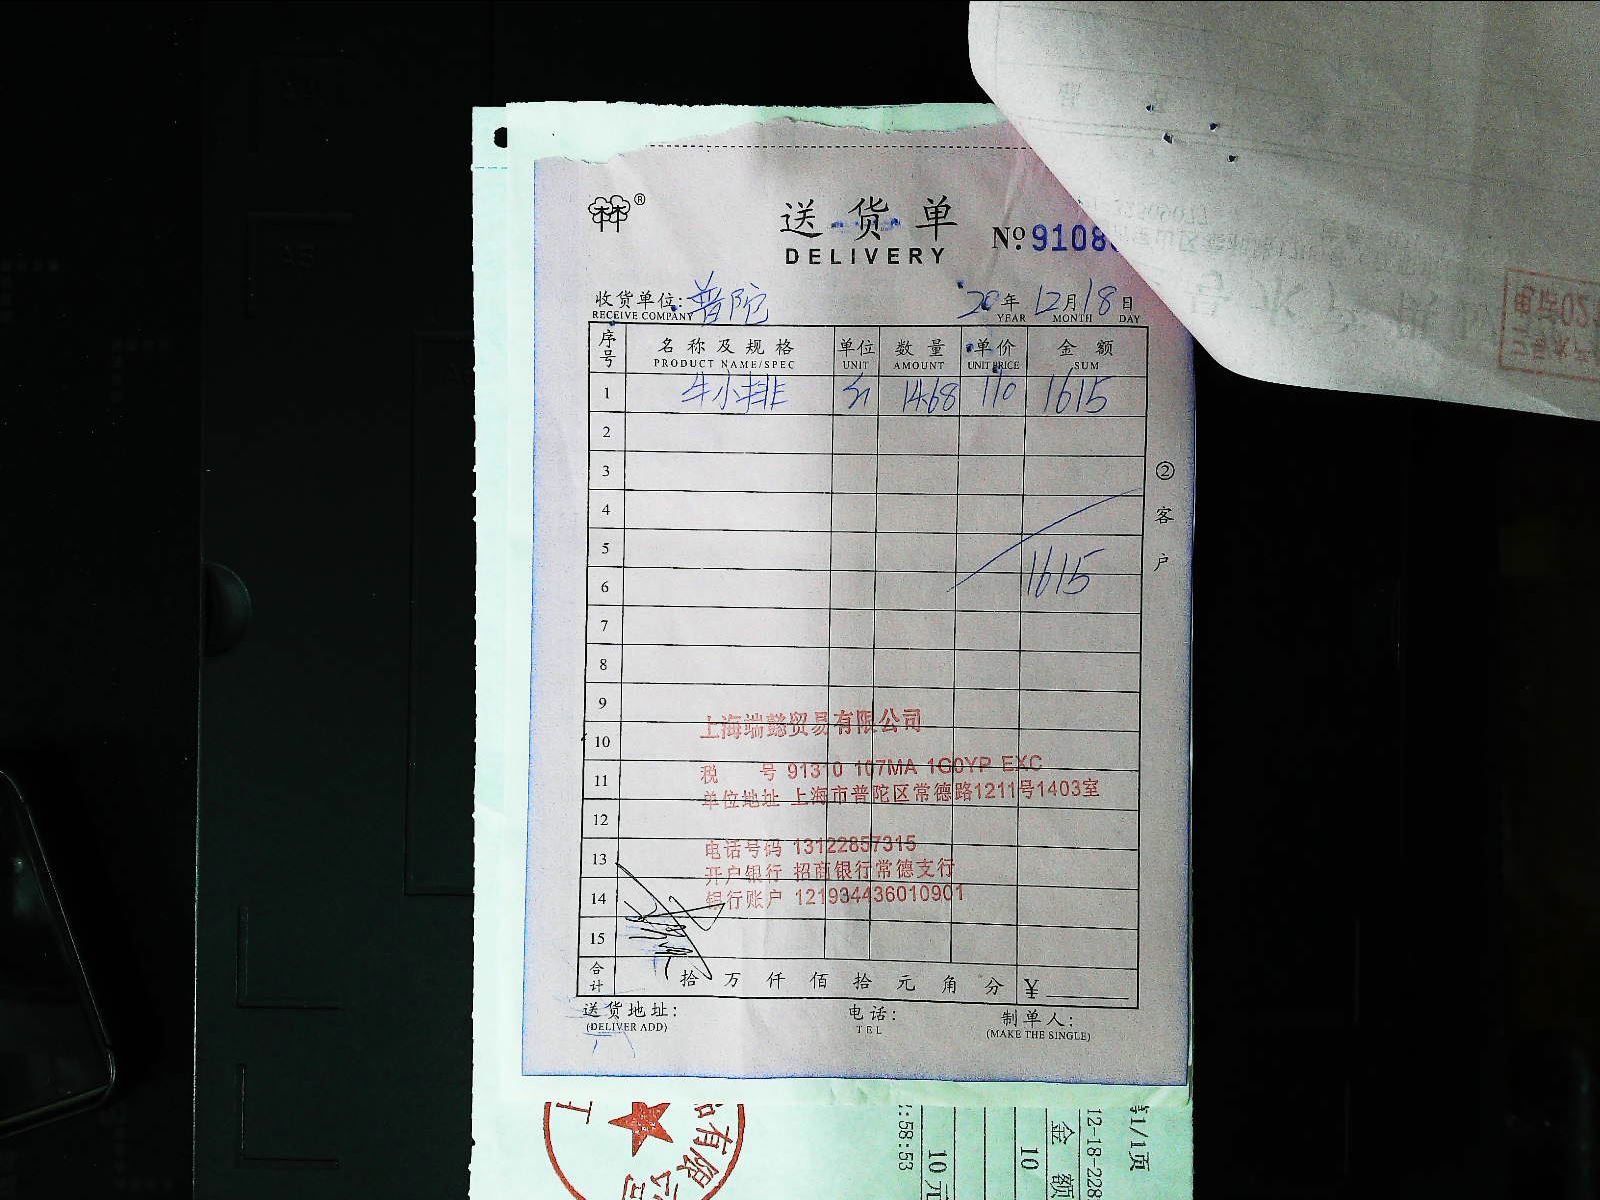 送货单
DELIVERY
®
No. 9108
收货单位: 普陀 20年 12月 18日
RECEIVE COMPANY YEAR MONTH DAY
序号 名称及规格 单位 数量 单价 金额
PRODUCT NAME/SPEC UNIT AMOUNT UNIT PRICE SUM
1 牛小排 14.68 110 1615
2
3
4
5
6 1615
7
8
9
10
11
12
13
14
15
② 客户
上海端懿贸易有限公司
税 号 91310 107MA 1G0YP EXC
单位地址 上海市普陀区常德路1211号1403室
电话号码 13122857315
开户银行 招商银行常德支行
银行账户 121934436010901
合计 拾 万 仟 佰 拾 元 角 分 ¥
送货地址: 电话: 制单人:
(DELIVER ADD) TEL (MAKE THE SINGLE)
有限公司
:58:53
10元
10
金 额
12-18-228
1/1页